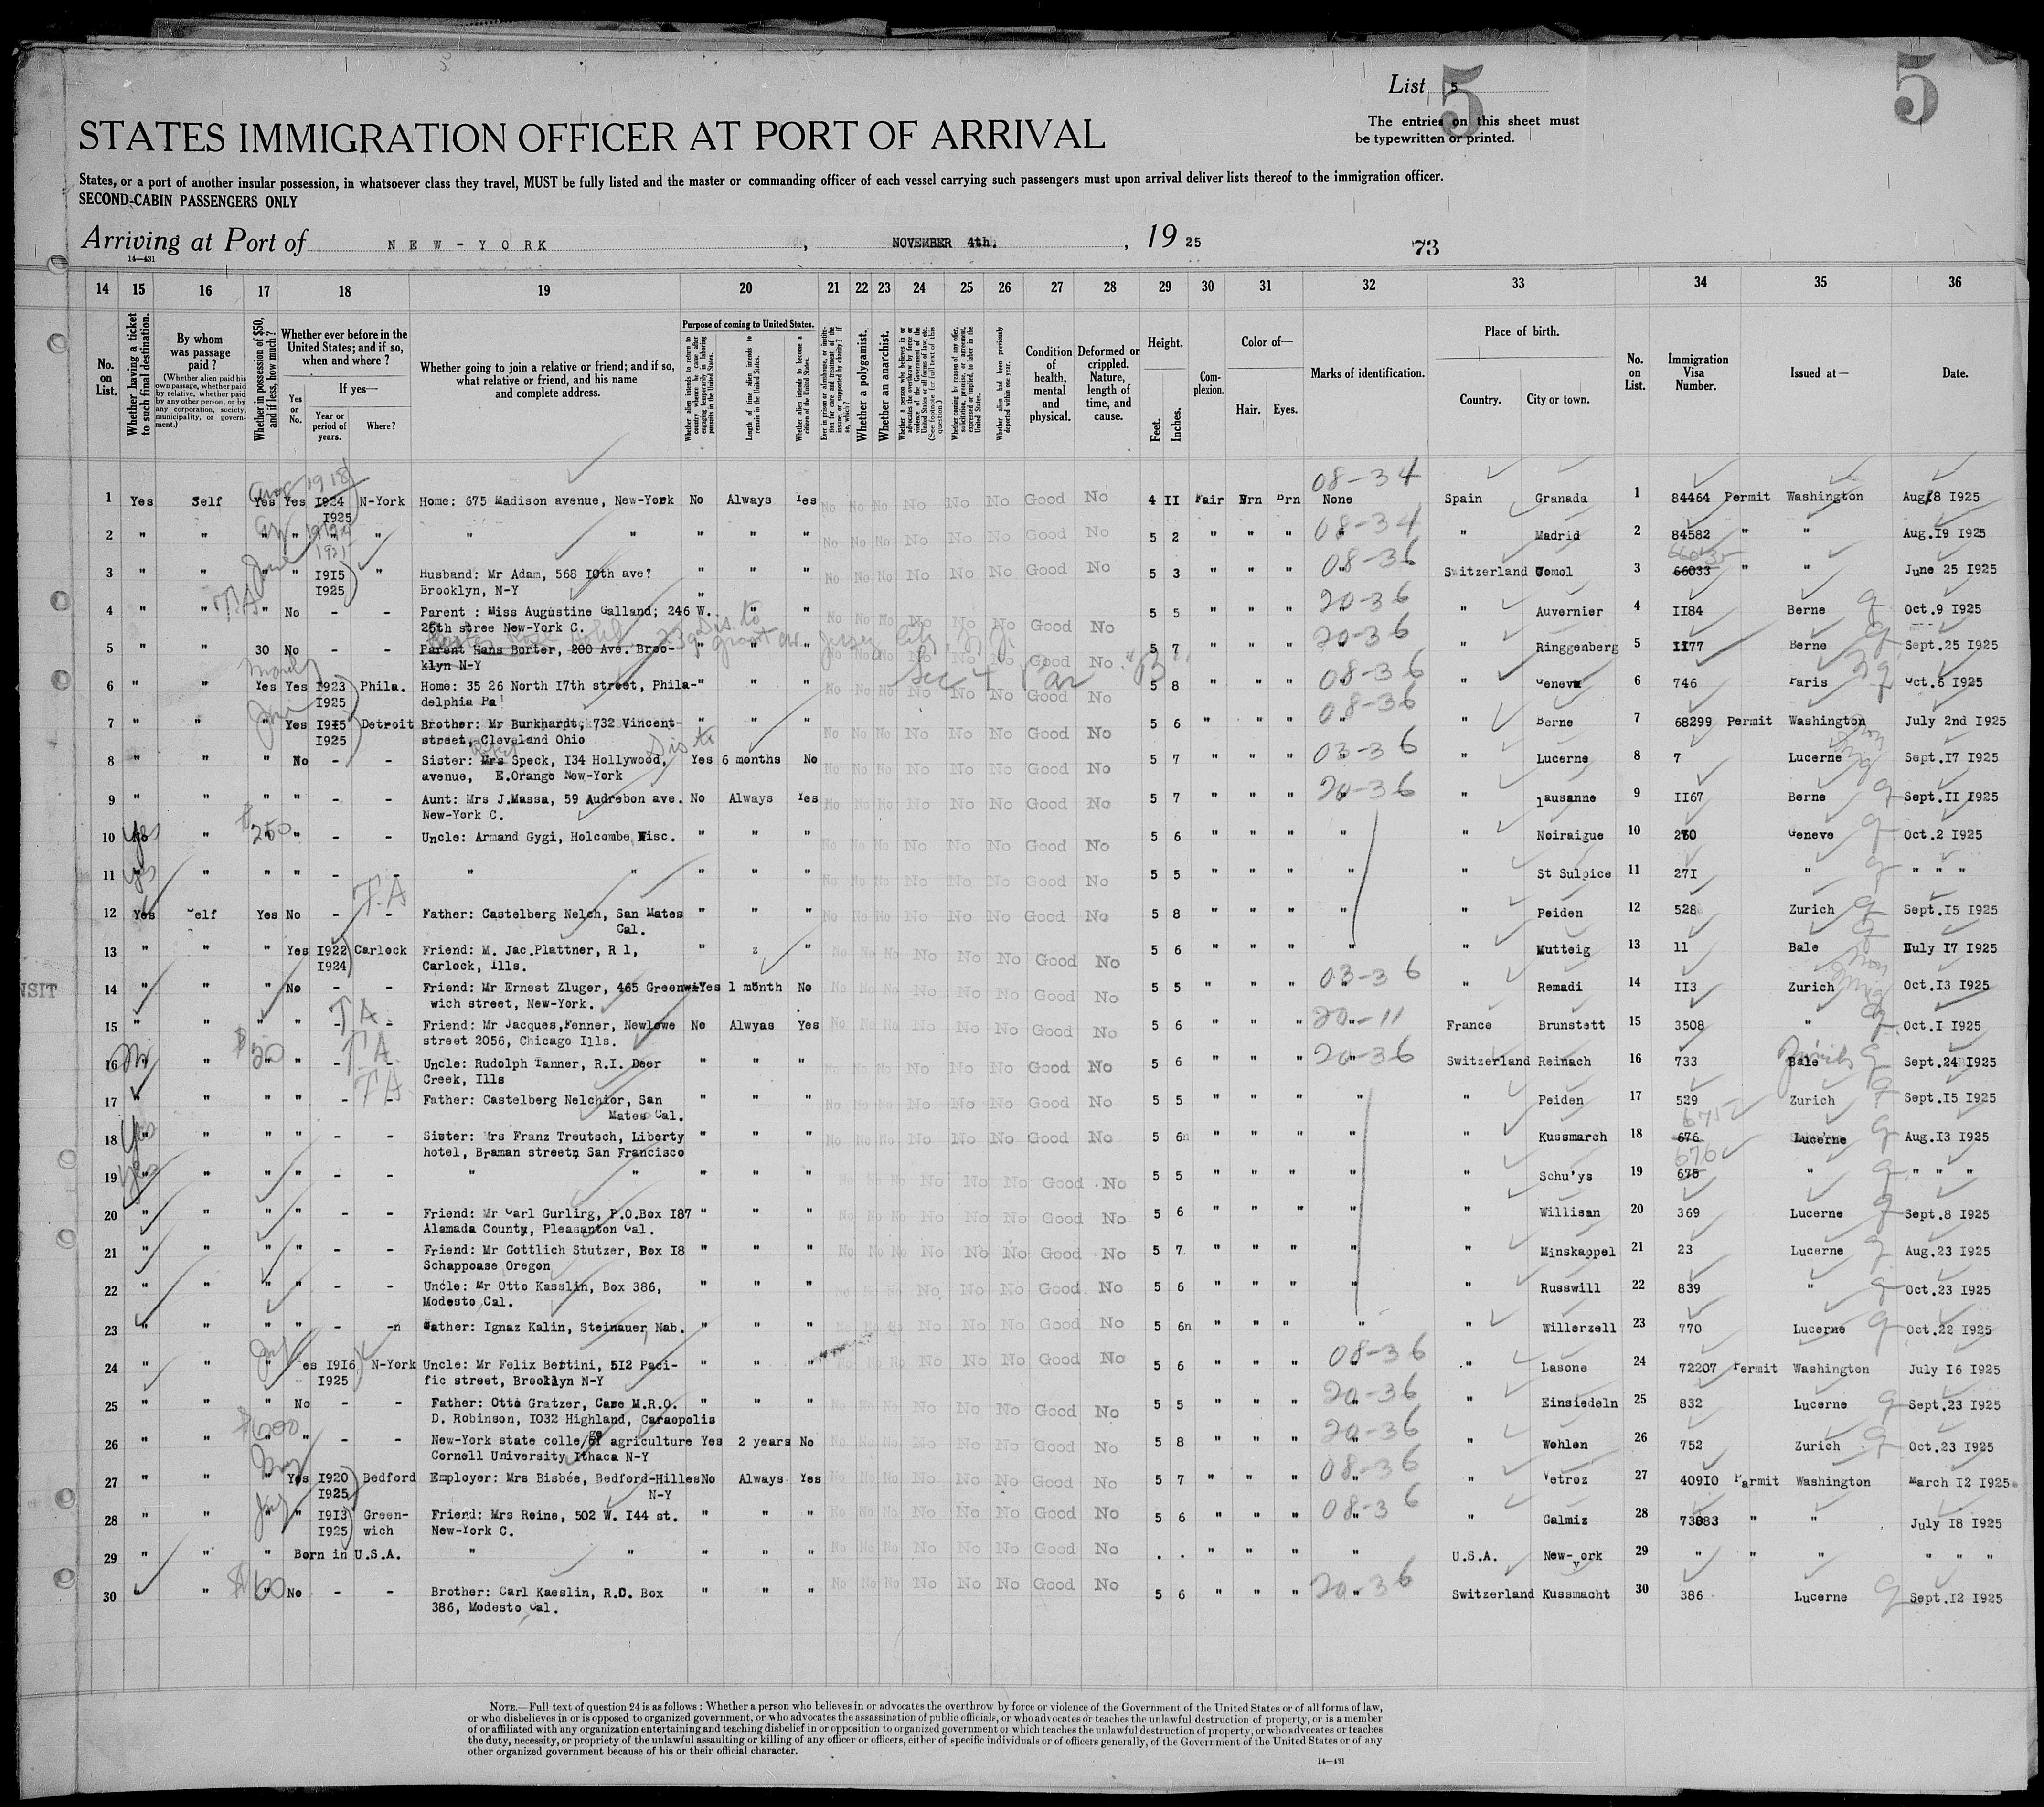 List 5
5
5
The entries on this sheet must
be typewritten or printed.
STATES IMMIGRATION OFFICER AT PORT OF ARRIVAL
States, or a port of another insular possession, in whatsoever class they travel, MUST be fully listed and the master or commanding officer of each vessel carrying such passengers must upon arrival deliver lists thereof to the immigration officer.
SECOND-CABIN PASSENGERS ONLY
Arriving at Port of NEW-YORK, NOVEMBER 4th., 1925
14—431
73
14 15 16 17 18 19 20 21 22 23 24 25 26 27 28 29 30 31 32 33 34 35 36
No. on List.
Whether having a ticket to such final destination.
By whom was passage paid?
(Whether alien paid his own passage, whether paid by relative, whether paid by any other person, or by any corporation, society, municipality, or government.)
Whether in possession of $50, and if less, how much?
Whether ever before in the United States; and if so, when and where?
Yes or No.
If yes—
Year or period of years.
Where?
Whether going to join a relative or friend; and if so, what relative or friend, and his name and complete address.
Purpose of coming to United States.
Whether alien intends to return to country whence he came after engaging temporarily in laboring pursuits in the United States.
Length of time alien intends to remain in the United States.
Whether alien intends to become a citizen of the United States.
Whether a polygamist.
Whether an anarchist.
Condition of health, mental and physical.
Deformed or crippled. Nature, length of time, and cause.
Height.
Feet.
Inches.
Complexion.
Color of—
Hair.
Eyes.
Marks of identification.
Place of birth.
Country.
City or town.
No. on List.
Immigration Visa Number.
Issued at—
Date.
1 Yes Self Yes Yes I924 I925 N-York Home: 675 Madison avenue, New-York No Always Yes No No No No No No Good No 4 II Fair Brn Brn None 08-34 Spain Granada 1 84464 Permit Washington Aug I8 I925
2 " " " " " " " " " " " No No No No No No Good No 5 2 " " " 08-34 " Madrid 2 84582 " " Aug.I9 I925
3 " " " " I9I5 I925 " Husband: Mr Adam, 568 I0th ave? Brooklyn, N-Y " " " No No No No No No Good No 5 3 " " " 08-36 Switzerland 3 66033 " " June 25 I925
4 " " T.A " No - - Parent : Miss Augustine Galland; 246 W. 26th stree New-York C. " " No No No No No No Good No 5 5 " " " 20-36 " Auvernier 4 II84 Berne Oct.9 I925
5 " " 30 No - - Parent Hans Borter, 200 Ave. Brooklyn N-Y " " " No No No No No No Good No 5 7 " " " 20-36 " Ringgenberg 5 II77 Berne Sept.25 I925
6 " " Yes Yes I923 I925 Phila. Home: 35 26 North I7th street, Philadelphia Pa " " " No No No No No No Good No 5 8 " " " 08-36 " Geneva 6 746 Paris Oct.6 I925
7 " " " Yes I9I5 I925 Detroit Brother: Mr Burkhardt, 732 Vincent street, Cleveland Ohio " " " No No No No No No Good No 5 6 " " " 08-36 " Berne 7 68299 Permit Washington July 2nd I925
8 " " " No - - Sister: Mrs Speck, I34 Hollywood, avenue, E.Orange New-York Yes 6 months No No No No No No No Good No 5 7 " " " 03-36 " Lucerne 8 7 Lucerne Sept.I7 I925
9 " " " " - - Aunt: Mrs J.Massa, 59 Audrebon ave. New-York C. No Always Yes No No No No No No Good No 5 7 " " " 20-36 " Lausanne 9 II67 Berne Sept.II I925
10 No Yes " $250 " - - Uncle: Armand Gygi, Holcombe Wisc. " " " No No No No No No Good No 5 6 " " " " " Noiraigue 10 270 Geneve Oct.2 I925
11 " Yes " " " - - " " " " " No No No No No No Good No 5 5 " " " " " St Sulpice 11 27I " " " "
12 Yes Self Yes No - T.A - Father: Castelberg Nelch, San Mates Cal. " " " No No No No No No Good No 5 8 " " " " " Peiden 12 528 Zurich Sept.I5 I925
13 " " " Yes I922 I924 Carlock Friend: M. Jac.Plattner, R l, Carlock, Ills. " z " No No No No No No Good No 5 6 " " " " " Mutteig 13 11 Bale July I7 I925
NSIT
14 " " " No - - Friend: Mr Ernest Zluger, 465 Greenwich street, New-York. Yes l month No No No No No No No Good No 5 5 " " " 03-36 " Remadi 14 II3 Zurich Oct.I3 I925
15 " " " " - TA - Friend: Mr Jacques,Fenner, Newlowe street 2056, Chicago Ills. No Alwyas Yes No No No No No No Good No 5 6 " " " 20-11 France Brunstett 15 3508 " Oct.I I925
16 No " $20 " - TA - Uncle: Rudolph Tanner, R.I. Deer Creek, Ills " " " No No No No No No Good No 5 6 " " " 20-36 Switzerland Reinach 16 733 Bale Zurich Sept.24 I925
17 " " " " - TA - Father: Castelberg Nelchior, San Mates Cal. " " " No No No No No No Good No 5 5 " " " " " Peiden 17 529 Zurich Sept.I5 I925
18 Yes " " " - - Sister: Mrs Franz Treutsch, Liberty hotel, Braman street, San Francisco " " " No No No No No No Good No 5 6 " " " " " Kussmarch 18 676 675 Lucerne Aug.I3 I925
19 Yes " " " - - " " " " " No No No No No No Good No 5 5 " " " " " Schu'ys 19 675 676 " " " "
20 " " " " - - Friend: Mr Carl Gurlirg, P.O.Box I87 Alamada County, Pleasanton Cal. " " " No No No No No No Good No 5 6 " " " " " Willisan 20 369 Lucerne Sept.8 I925
21 " " " " - - Friend: Mr Gottlich Stutzer, Box I8 Schappoase Oregon " " " No No No No No No Good No 5 7 " " " " " Minskappel 21 23 Lucerne Aug.23 I925
22 " " " " - - Uncle: Mr Otto Kasslin, Box 386, Modesto Cal. " " " No No No No No No Good No 5 6 " " " " " Russwill 22 839 " Oct.23 I925
23 " " " " - -n Father: Ignaz Kalin, Steinauer, Nab. " " " No No No No No No Good No 5 6n " " " " " Willerzell 23 770 Lucerne Oct.22 I925
24 " " " es I9I6 I925 N-York Uncle: Mr Felix Bettini, 5I2 Pacific street, Brooklyn N-Y " " " No No No No No No Good No 5 6 " " " 08-36 " Lasone 24 72207 Permit Washington July I6 I925
25 " " " No - - Father: Otto Gratzer, Care M.R.O. D. Robinson, I032 Highland, Caraopolis " " " No No No No No No Good No 5 5 " " " 20-36 " Einsiedeln 25 832 Lucerne Sept.23 I925
26 " " $600 " - - New-York state college of agriculture Cornell University Ithaca N-Y Yes 2 years No No No No No No No Good No 5 8 " " " 20-36 " Wohlen 26 752 Zurich Oct.23 I925
27 " " " Yes I920 I925 Bedford Employer: Mrs Bisbée, Bedford-Hilles N-Y No Always Yes No No No No No No Good No 5 7 " " " 08-36 " Vetroz 27 409I0 Permit Washington March I2 I925
28 " " " " I9I3 I925 Greenwich Friend: Mrs Reine, 502 W. I44 st. New-York C. " " " No No No No No No Good No 5 6 " " " 08-36 " Galmiz 28 73083 " " July I8 I925
29 " " " Born in U.S.A. " " " " " No No No No No No Good No . . " " " " U.S.A. New-york 29 " " " " " "
30 " " $60 No - - Brother: Carl Kaeslin, R.C. Box 386, Modesto Cal. " " " No No No No No No Good No 5 6 " " " 20-36 Switzerland Kussmacht 30 386 Lucerne Sept.I2 I925
NOTE.—Full text of question 24 is as follows: Whether a person who believes in or advocates the overthrow by force or violence of the Government of the United States or of all forms of law,
or who disbelieves in or is opposed to organized government, or who advocates the assassination of public officials, or who advocates or teaches the unlawful destruction of property, or is a member
of or affiliated with any organization entertaining and teaching disbelief in or opposition to organized government or which teaches the unlawful destruction of property, or who advocates or teaches
the duty, necessity, or propriety of the unlawful assaulting or killing of any officer or officers, either of specific individuals or of officers generally, of the Government of the United States or of any
other organized government because of his or their official character.
14—431